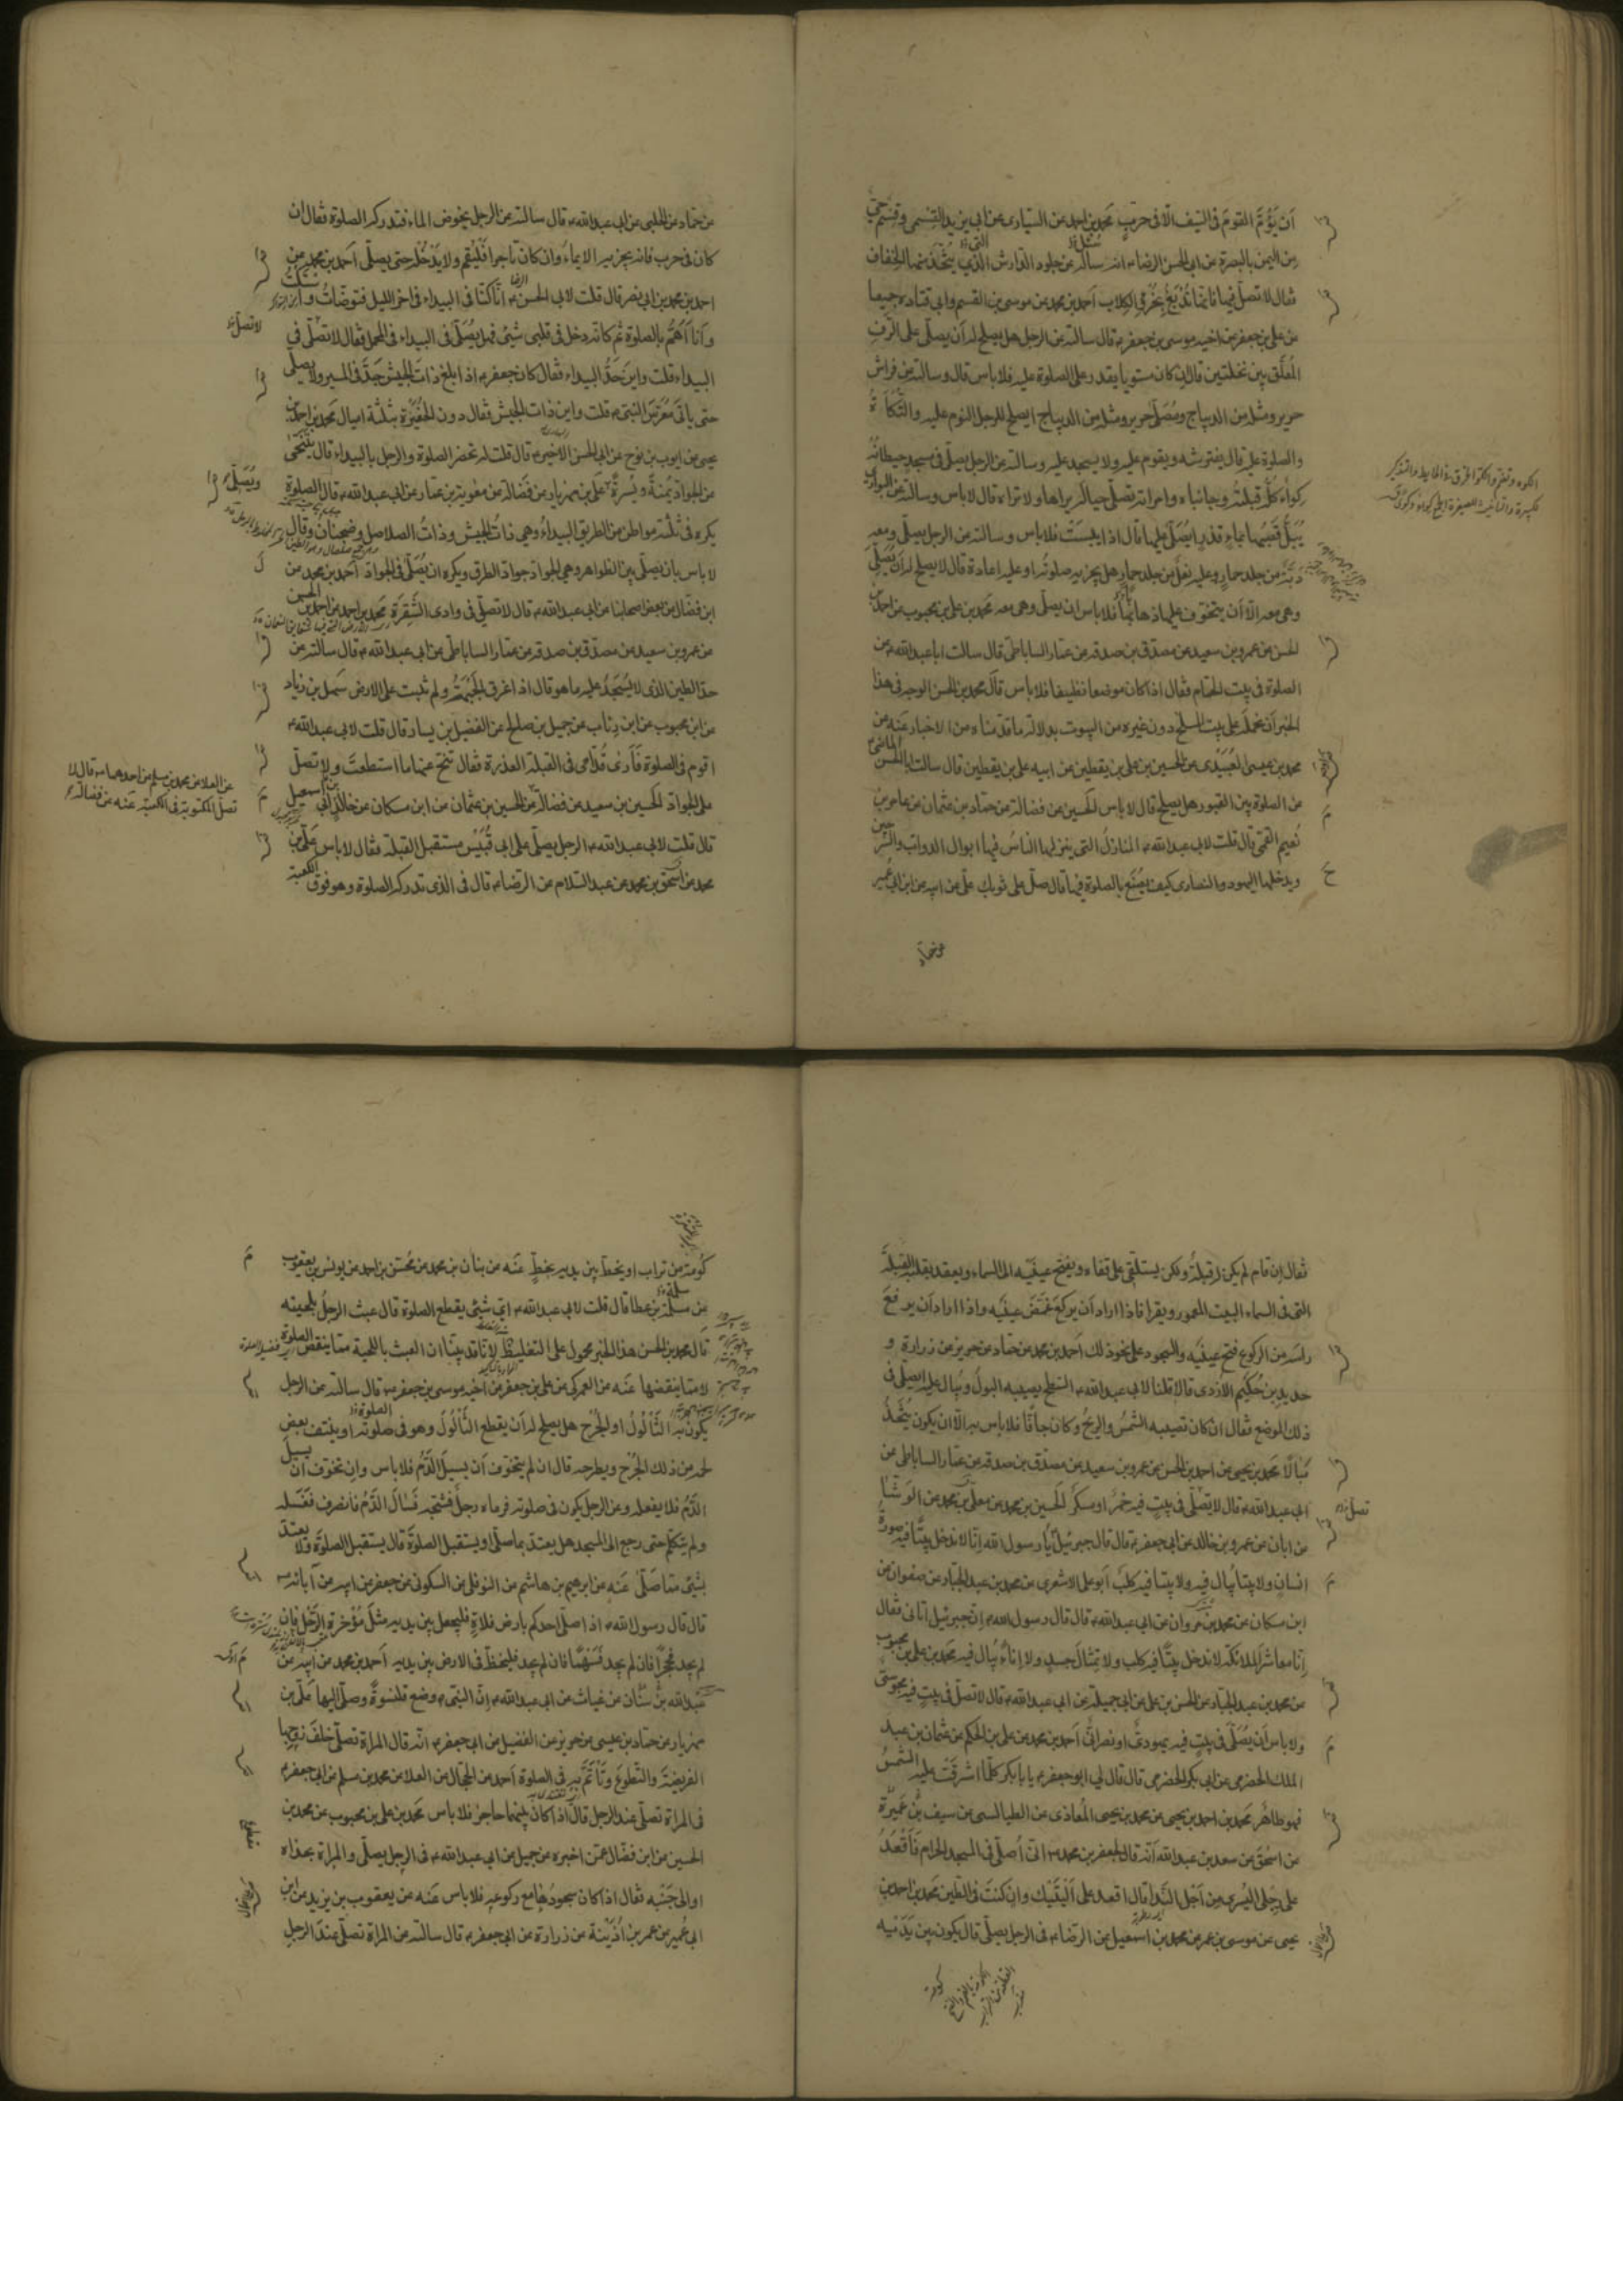 أن يؤم القوم في السيف الا في حرب محمد بن احمد عن السياري عن ابي يزيد القسمي وقسم حي
من اليمن بالبصرة عن ابي الحسن الرضا انه سأله عن جلود الدارش الذي يتخذ منها الخفاف
فقال لا تصل فيها فانها تدبغ بخرء الكلاب احمد بن محمد عن موسى بن القسم وابي قتادة جميعا
عن علي بن جعفر عن اخيه موسى بن جعفر قال سالته عن الرجل هل يصلح له أن يصلي على الرف
المعلق بين نخلتين قال ان كان مستويا يقدر على الصلوة عليه فلا باس قال وسالته عن فراش
حرير ومثله من الديباج ومصلى حرير ومثله من الديباج ايصلح للرجل النوم عليه والتكأة
والصلوة عليه قال يفترشه ويقوم عليه ولا يسجد عليه وسالته عن الرجل يصلي في مسجد حيطانه
كواء كله قبلته وجانباه وامراته تصلي حياله يراها ولا تراه قال لا باس وسالته عن البواري
يبل قصبها بماء قذر ايصلى عليها قال اذا يبست فلا باس وسالته عن الرجل يصلي ومعه
دبة من جلد حمار وعليه نعل من جلد حمار هل يجزيه صلوته او عليه اعادة قال لا يصلح له أن يصلي
وهي معه الا أن يتخوف عليها ذهابها فلا باس ان يصلي وهي معه محمد بن علي بن محبوب عن احمد بن
الحسن عن عمرو بن سعيد عن مصدق بن صدقه عن عمار الساباطي قال سالت ابا عبد الله عن
الصلوة في بيت الحمام فقال اذا كان موضعا نظيفا فلا باس قال محمد بن الحسن الوجه في هذا
الخبر أن نحمله على بيت المسلخ دون غيره من البيوت بدلالة ما قدمناه من الاخبار عنه عن
محمد بن عيسى العبيدي عن الحسين بن علي بن يقطين عن ابيه علي بن يقطين قال سالت ابا الحسن الماضي
عن الصلوة بين القبور هل يصلح قال لا باس الحسين عن فضالة عن حماد بن عثمان عن عامر بن
نعيم القمي قال قلت لابي عبد الله المنازل التي ينزلها الناس فيها ابوال الدواب والسرجين
ويدخلها اليهود والنصارى كيف يصنع بالصلوة فيها قال صل على ثوبك علي عن ابيه عن ابن ابي عمير
عن حماد
عن حماد عن الحلبي عن ابي عبد الله قال سالته عن الرجل يخوض الماء فتدركه الصلوة فقال ان
كان في حرب فانه يجزيه الايماء وان كان تاجرا فليقم ولا يدخله حتى يصلي احمد بن محمد عن
احمد بن محمد بن ابي نصر قال قلت لابي الحسن انا كنا في البيداء في اخر الليل فتوضأت واستكت
وأنا أهم بالصلوة ثم كانه دخل في قلبي شيء فهل يصلى في البيداء في المحمل فقال لا تصلي في
البيداء قلت واين حد البيداء فقال كان جعفر اذا بلغ ذات الجيش جد في المسير ولا يصلي
حتى ياتي معرس النبي قلت واين ذات الجيش فقال دون الحفيرة بثلثة اميال محمد بن احمد بن
يحيى عن ايوب بن نوح عن ابي الحسن الاخير قال قلت له تحضر الصلوة والرجل بالبيداء قال يتنحى
عن الجواد يمنة ويسرة ويصلي علي بن مهزيار عن فضالة عن معوية بن عمار عن ابي عبد الله قال الصلوة
يكره في ثلثة مواطن من الطريق البيداء وهي ذات الجيش وذات الصلاصل وضجنان وقال
لا باس بان يصلي بين الظواهر وهي الجواد جواد الطرق ويكره ان يصلى في الجواد احمد بن محمد عن
ابن فضال عن بعض اصحابنا عن ابي عبد الله قال لا تصلي في وادي الشقرة محمد بن احمد عن احمد بن الحسن
عن عمرو بن سعيد عن مصدق بن صدقه عن عمار الساباطي عن ابي عبد الله قال سالته عن
حد الطين الذي لا يسجد عليه ما هو قال اذا غرق الجبهة ولم تثبت على الارض سهل بن زياد
عن ابن محبوب عن ابن رئاب عن جميل بن صالح عن الفضيل بن يسار قال قلت لابي عبد الله
اقوم في الصلوة فأرى قدامي في القبلة العذرة فقال تنح عنها ما استطعت ولا تصل
على الجواد الحسين بن سعيد عن فضالة عن الحسين بن عثمان عن ابن مسكان عن خالد بن ابي اسمعيل
قال قلت لابي عبد الله الرجل يصلي على ابي قبيس مستقبل القبلة فقال لا باس علي بن
محمد عن اسحق بن محمد عن عبد السلام عن الرضا قال في الذي تدركه الصلوة وهو فوق الكعبة
عن العلا عن محمد بن مسلم عن احدهما قال لا
تصل المكتوبة في الكعبة عنه عن فضالة
فقال ان قام لم يكن له قبلة ولكن يستلقي على قفاه ويفتح عينيه الى السماء ويعقد بقلبه القبلة
التي في السماء البيت المعمور ويقرا فاذا اراد أن يركع غمض عينيه واذا اراد أن يرفع
راسه من الركوع فتح عينيه والسجود على نحو ذلك احمد بن محمد عن حماد عن حريز عن زرارة و
حديد بن حكيم الازدي قالا قلنا لابي عبد الله السطح يصيبه البول ويبال عليه ايصلى في
ذلك الموضع فقال ان كان تصيبه الشمس والريح وكان جافا فلا باس به الا ان يكون يتخذ
مبالا محمد بن يحيى عن احمد بن الحسن عن عمرو بن سعيد عن مصدق بن صدقه عن عمار الساباطي عن
ابي عبد الله قال لا تصلي في بيت فيه خمر او مسكر الحسين بن محمد عن معلى بن محمد عن الوشا
عن ابان عن عمرو بن خالد عن ابي جعفر قال قال جبرئيل يا رسول الله إنا لا ندخل بيتا فيه صورة
انسان ولا بيتا يبال فيه ولا بيتا فيه كلب أبو علي الاشعري عن محمد بن عبد الجبار عن صفوان عن
ابن مسكان عن محمد بن مروان عن ابي عبد الله قال قال رسول الله إن جبرئيل أتاني فقال
إنا معاشر الملائكة لا ندخل بيتا فيه كلب ولا تمثال جسد ولا إناء يبال فيه محمد بن علي بن محبوب
عن محمد بن عبد الجبار عن الحسن بن علي عن ابي جميلة عن ابي عبد الله قال لا تصل في بيت فيه مجوسي
ولا باس أن يصلي في بيت فيه يهودي او نصراني أحمد بن محمد عن علي بن الحكم عن عثمان بن عبد
الملك الحضرمي عن ابي بكر الحضرمي قال قال لي ابو جعفر يا بابكر كلما اشرقت عليه الشمس
فهو طاهر محمد بن احمد بن يحيى عن محمد بن يحيى المعاذي عن الطيالسي عن سيف بن عميرة
عن اسحق عن سعد بن عبد الله أنه قال لجعفر بن محمد اني أصلي في المسجد الحرام فأقعد
على رجلي اليسرى من أجل الندا قال اقعد على أليتيك وان كنت في الطين محمد بن احمد بن
يحيى عن موسى بن عمر عن محمد بن اسمعيل عن الرضا في الرجل يصلي قال يكون بين يديه
كومة
كومة من تراب او يخط بين يديه بخط عنه عن بنان بن محمد عن محسن بن احمد عن يونس بن يعقوب
عن سلمة بن عطا قال قلت لابي عبد الله اي شيء يقطع الصلوة قال عبث الرجل بلحيته
قال محمد بن الحسن هذا الخبر محمول على التغليظ لانا قد بينا ان العبث باللحية مما ينقص الصلوة
لا مما ينقضها عنه عن العمركي عن علي بن جعفر عن اخيه موسى بن جعفر قال سالته عن الرجل
يكون به الثألول او الجرح هل يصلح له أن يقطع الثألول وهو في صلوته او ينتف بعض
لحمه من ذلك الجرح ويطرحه قال ان لم يتخوف أن يسيل الدم فلا باس وان تخوف أن يسيل
الدم فلا يفعله وعن الرجل يكون في صلوته فرماه رجل فشجه فسال الدم فانصرف فغسله
ولم يتكلم حتى رجع الى المسجد هل يعتد بما صلى او يستقبل الصلوة قال يستقبل الصلوة ولا يعتد
بشيء مما صلى عنه عن ابرهيم بن هاشم عن النوفلي عن السكوني عن جعفر عن ابيه عن آبائه
قال قال رسول الله اذا صلى احدكم بارض فلاة فليجعل بين يديه مثل مؤخرة الرحل فان
لم يجد فحجرا فان لم يجد فسهما فان لم يجد فليخط في الارض بين يديه أحمد بن محمد عن أبيه عن
عبد الله بن سنان عن غياث عن ابي عبد الله إن النبي وضع قلنسوة وصلى اليها علي بن
مهزيار عن حماد بن عيسى عن حريز عن الفضيل عن ابي جعفر انه قال المراة تصلي خلف زوجها
الفريضة والتطوع وتأتم به في الصلوة احمد عن الحجال عن العلا عن محمد بن مسلم عن ابي جعفر
في المراة تصلي عند الرجل قال اذا كان بينهما حاجز فلا باس محمد بن علي بن محبوب عن محمد بن
الحسين عن ابن فضال عمن اخبره عن جميل عن ابي عبد الله في الرجل يصلي والمراة بحذاه
او الى جنبه فقال اذا كان سجودها مع ركوعه فلا باس عنه عن يعقوب بن يزيد عن ابن
ابي عمير عن عمر بن أذينة عن زرارة عن ابي جعفر قال سالته عن المراة تصلي عند الرجل